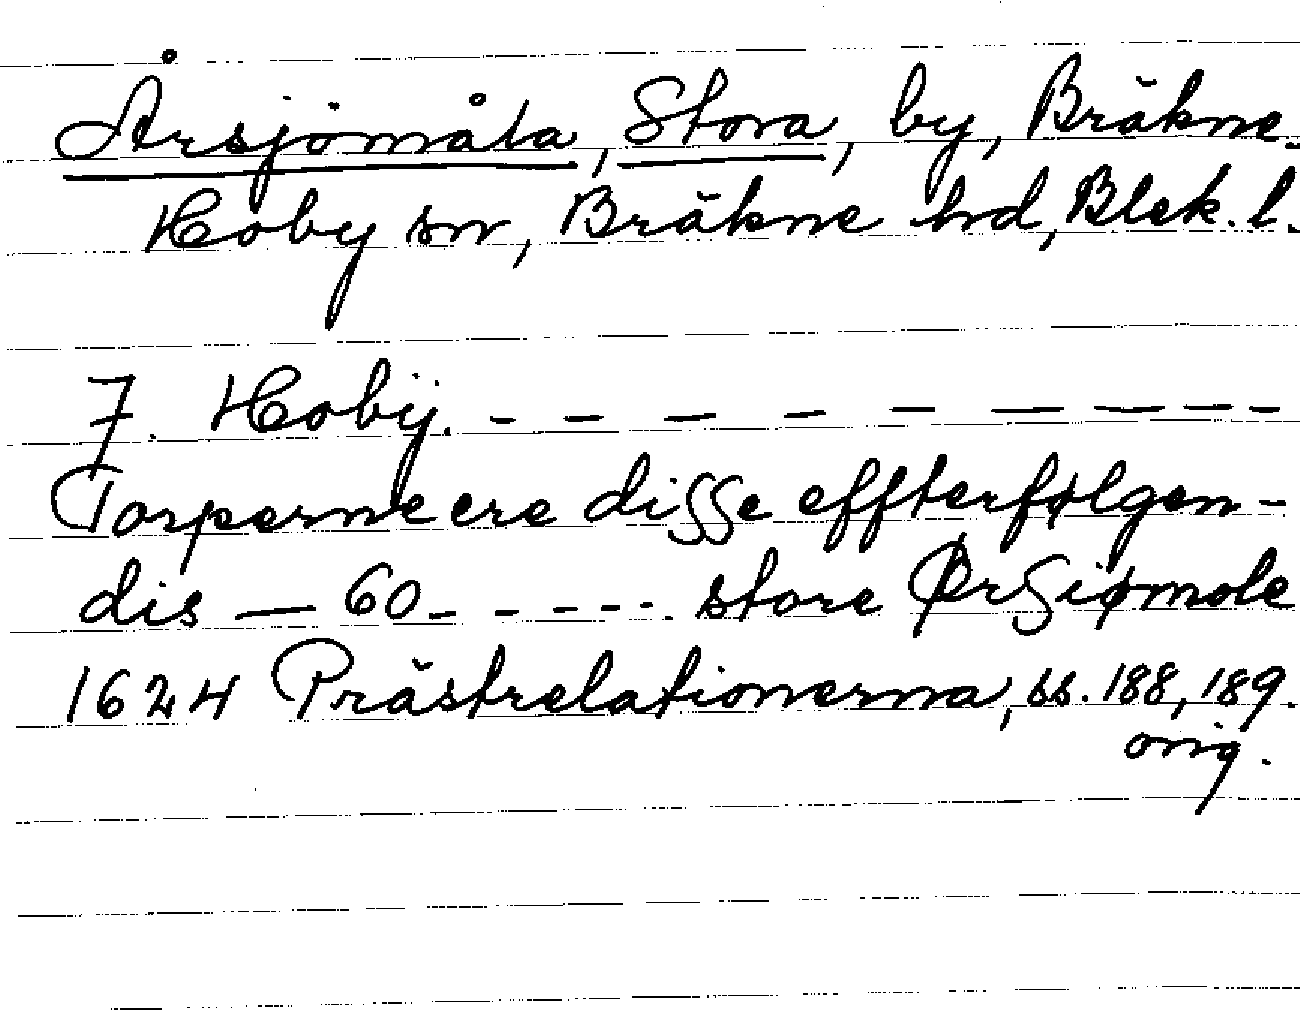 Årsjömåla, Stora, by, Bräkne-
Hoby sn, Bräkne hd, Blek. l.
7. Hobÿ. - - - - - - - - -
Torperne ere disse effterfølgen-
dis — 60 - - - - - store Ørsiømole
1624 Prästrelationerna, ss. 188, 189.
orig.